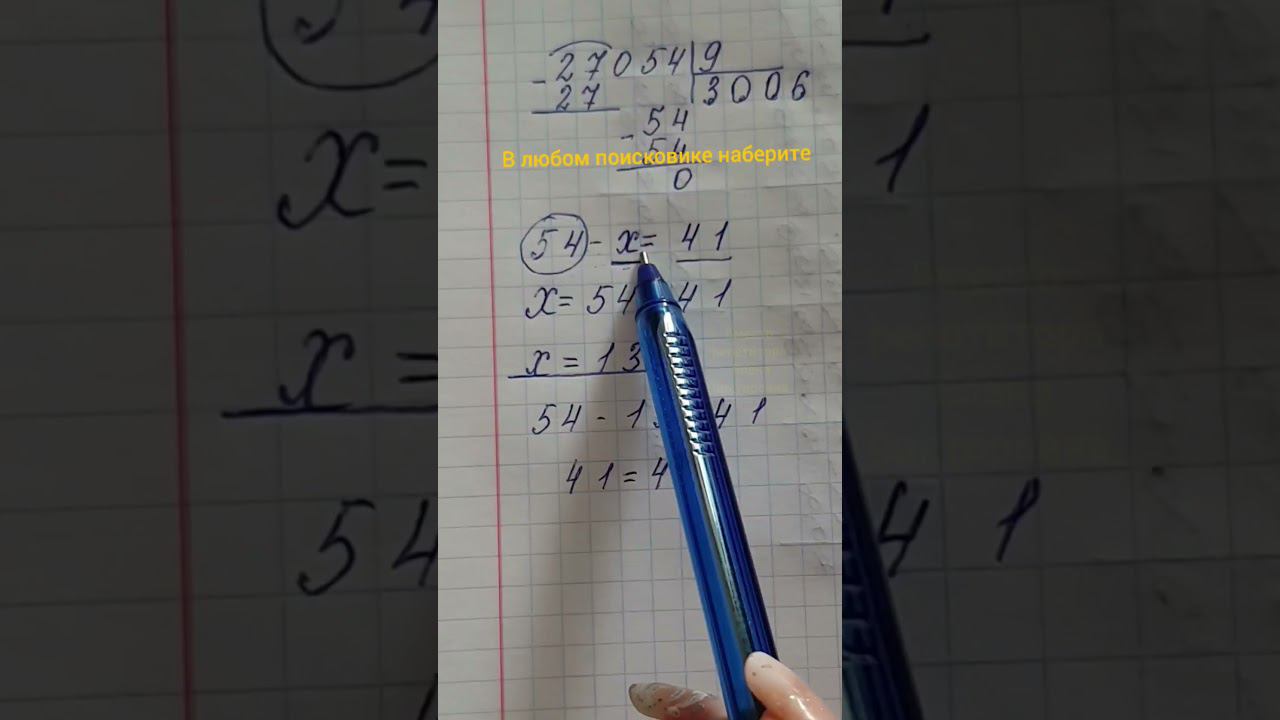 27054|9
- 27 3006
- 54
54
В любом поисковике наберите
0
54 - x = 41
x = 54 41
x = 13
54 - 1 41
41 = 4